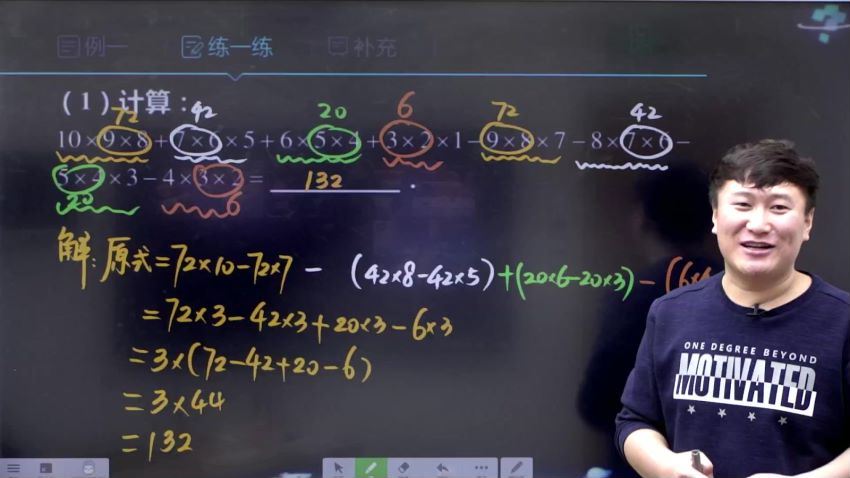 例一 练一练 补充
(1)计算:
72 42 20 6 72 42
10×9×8+7×6×5+6×5×4+3×2×1-9×8×7-8×7×6-
5×4×3-4×3×2= 132 .
20 6
解:原式=72×10-72×7-(42×8-42×5)+(20×6-20×3)-(6×
=72×3-42×3+20×3-6×3
=3×(72-42+20-6)
=3×44
=132
ONE DEGREE BEYOND
MOTIVATED